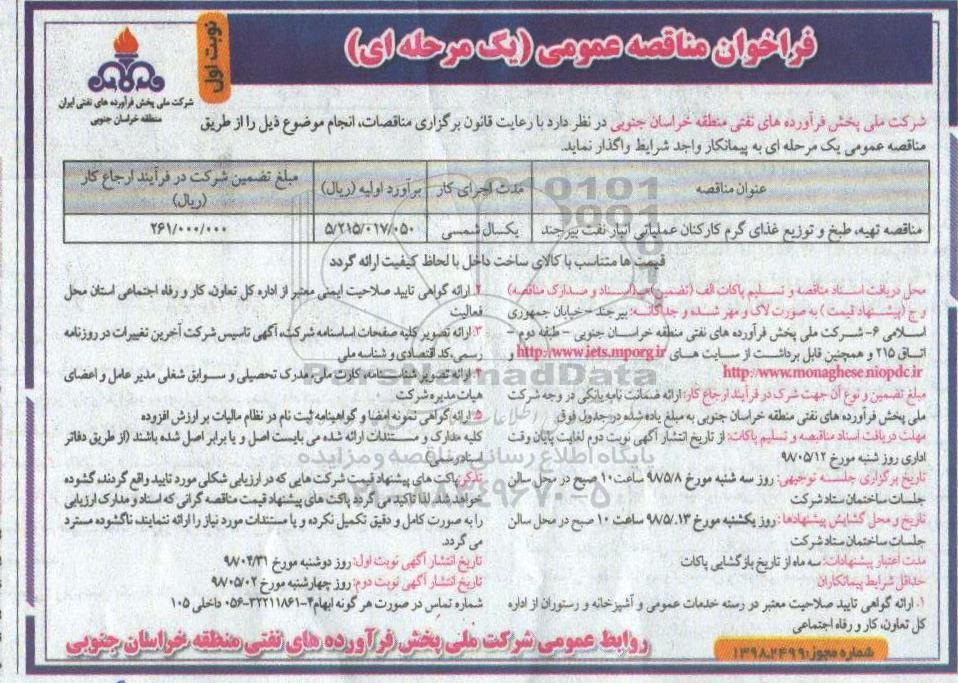 فراخوان مناقصه عمومی (یک مرحله ای)
نوبت اول
شرکت ملی پخش فرآورده های نفتی ایران
منطقه خراسان جنوبی
شرکت ملی پخش فرآورده های نفتی منطقه خراسان جنوبی در نظر دارد با رعایت قانون برگزاری مناقصات، انجام موضوع ذیل را از طریق
مناقصه عمومی یک مرحله ای به پیمانکار واجد شرایط واگذار نماید.
عنوان مناقصه مدت اجرای کار برآورد اولیه (ریال) مبلغ تضمین شرکت در فرآیند ارجاع کار
(ریال)
مناقصه تهیه، طبخ و توزیع غذای گرم کارکنان عملیاتی انبار نفت بیرجند یکسال شمسی ۵/۲۱۵/۰۱۷/۰۵۰ ۲۶۱/۰۰۰/۰۰۰
قیمت ها متناسب با کالای ساخت داخل با لحاظ کیفیت ارائه گردد
محل دریافت اسناد مناقصه و تسلیم پاکات الف (تضمین)، ب (اسناد و مدارک مناقصه)
و ج (پیشنهاد قیمت) به صورت لاک و مهر شده و جداگانه: بیرجند - خیابان جمهوری
اسلامی ۶- شرکت ملی پخش فرآورده های نفتی منطقه خراسان جنوبی - طبقه دوم -
اتاق ۲۱۵ و همچنین قابل برداشت از سایت های http://www.iets.mporg.ir و
http://www.monaghese.niopdc.ir
مبلغ تضمین و نوع آن جهت شرکت در فرآیند ارجاع کار: ارائه ضمانت نامه بانکی در وجه شرکت
ملی پخش فرآورده های نفتی منطقه خراسان جنوبی به مبلغ یاده شده در جدول فوق
مهلت دریافت اسناد مناقصه و تسلیم پاکات: از تاریخ انتشار آگهی نوبت دوم لغایت پایان وقت
اداری روز شنبه مورخ ۹۸/۰۵/۱۲
تاریخ برگزاری جلسه توجیهی: روز سه شنبه مورخ ۹۸/۵/۸ ساعت ۱۰ صبح در محل سالن
جلسات ساختمان ستاد شرکت
تاریخ و محل گشایش پیشنهادها: روز یکشنبه مورخ ۹۸/۵/۱۳ ساعت ۱۰ صبح در محل سالن
جلسات ساختمان ستاد شرکت
مدت اعتبار پیشنهادات: سه ماه از تاریخ بازگشایی پاکات
حداقل شرایط پیمانکاران
۱. ارائه گواهی تایید صلاحیت معتبر در رسته خدمات عمومی و آشپزخانه و رستوران از اداره
کل تعاون، کار و رفاه اجتماعی
۲. ارائه گواهی تایید صلاحیت ایمنی معتبر از اداره کل تعاون، کار و رفاه اجتماعی استان محل
فعالیت
۳. ارائه تصویر کلیه صفحات اساسنامه شرکت، آگهی تاسیس شرکت آخرین تغییرات در روزنامه
رسمی، کد اقتصادی و شناسه ملی
۴. ارائه تصویر شناسنامه، کارت ملی، مدرک تحصیلی و سوابق شغلی مدیر عامل و اعضای
هیات مدیره شرکت
۵. ارائه گواهی نمونه امضا و گواهینامه ثبت نام در نظام مالیات بر ارزش افزوده
کلیه مدارک و مستندات ارائه شده می بایست اصل و یا برابر اصل شده باشند (از طریق دفاتر
اسناد رسمی)
تذکر: پاکت های پیشنهاد قیمت شرکت هایی که در ارزیابی شکلی مورد تایید واقع گردند گشوده
خواهد شد. لذا تاکید می گردد پاکت های پیشنهاد قیمت مناقصه گرانی که اسناد و مدارک ارزیابی
را به صورت کامل و دقیق تکمیل نکرده و یا مستندات مورد نیاز را ارائه ننمایند، ناگشوده مسترد
می گردد.
تاریخ انتشار آگهی نوبت اول: روز دوشنبه مورخ ۹۸/۰۴/۳۱
تاریخ انتشار آگهی نوبت دوم: روز چهارشنبه مورخ ۹۸/۰۵/۰۲
شماره تماس در صورت هر گونه ابهام ۴-۳۲۲۱۱۸۶۱-۰۵۶ داخلی ۱۰۵
شماره مجوز: ۱۳۹۸،۲۴۹۹
روابط عمومی شرکت ملی پخش فرآورده های نفتی منطقه خراسان جنوبی
ParsNamadData
پایگاه اطلاع رسانی مناقصه و مزایده